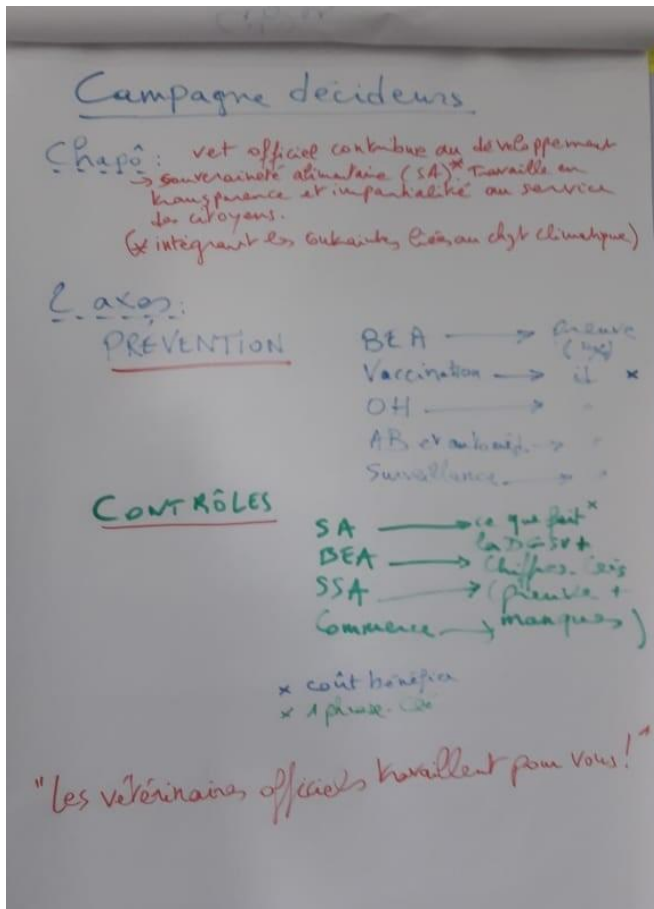 Campagne décideurs
Chapô : vet officiel contribue au développement
→ souveraineté alimentaire (SA)*. Travaille en
transparence et impartialité au service
des citoyens.
(* intégrant les contraintes liées au chgt climatique)
2 axes :
PREVENTION
BEA → preuve
Vaccination → *
OH → "
AB et → "
Surveillance → "
CONTRÔLES
SA → ce que fait *
la
BEA → Chiffres
SSA → (preuve +
Commerce → manques)
* coût bénéfice
* 1 phrase
"Les vétérinaires officiels travaillent pour vous !"